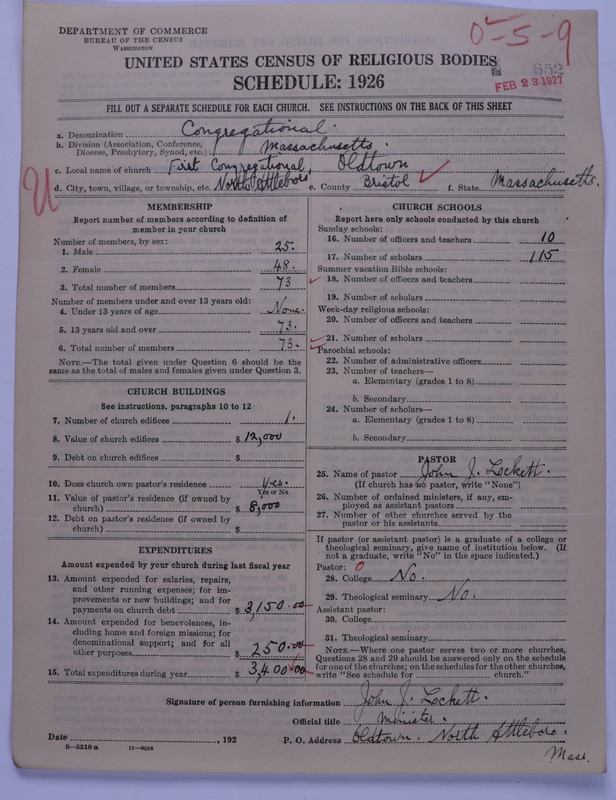 DEPARTMENT OF COMMERCE
BUREAU OF THE CENSUS
WASHINGTON
0-5-9
652
FEB 23 1927
UNITED STATES CENSUS OF RELIGIOUS BODIES
SCHEDULE: 1926
FILL OUT A SEPARATE SCHEDULE FOR EACH CHURCH. SEE INSTRUCTIONS ON THE BACK OF THIS SHEET
a. Denomination Congregational.
b. Division (Association, Conference, Diocese, Presbytery, Synod, etc.) Massachusetts.
c. Local name of church First Congregational, Oldtown
d. City, town, village, or township, etc. North Attleboro, e. County Bristol f. State Massachusetts.
MEMBERSHIP
Report number of members according to definition of
member in your church
Number of members, by sex:
1. Male 25.
2. Female 48.
3. Total number of members 73
Number of members under and over 13 years old:
4. Under 13 years of age None.
5. 13 years old and over 73.
6. Total number of members 73.
NOTE.—The total given under Question 6 should be the
same as the total of males and females given under Question 3.
CHURCH BUILDINGS
See instructions, paragraphs 10 to 12
7. Number of church edifices 1.
8. Value of church edifices $12,000
9. Debt on church edifices $
10. Does church own pastor's residence Yes.
Yes or No
11. Value of pastor's residence (if owned by
church) $ 8,000
12. Debt on pastor's residence (if owned by
church) $
EXPENDITURES
Amount expended by your church during last fiscal year
13. Amount expended for salaries, repairs,
and other running expenses; for im-
provements or new buildings; and for
payments on church debt $ 3,150.00
14. Amount expended for benevolences, in-
cluding home and foreign missions; for
denominational support; and for all
other purposes $ 250.00
15. Total expenditures during year $ 3,400.00
CHURCH SCHOOLS
Report here only schools conducted by this church
Sunday schools:
16. Number of officers and teachers 10
17. Number of scholars 115
Summer vacation Bible schools:
18. Number of officers and teachers
19. Number of scholars
Week-day religious schools:
20. Number of officers and teachers
21. Number of scholars
Parochial schools:
22. Number of administrative officers
23. Number of teachers—
a. Elementary (grades 1 to 8)
b. Secondary
24. Number of scholars—
a. Elementary (grades 1 to 8)
b. Secondary
PASTOR
25. Name of pastor John J. Lockett.
(If church has no pastor, write "None")
26. Number of ordained ministers, if any, em-
ployed as assistant pastors
27. Number of other churches served by the
pastor or his assistants
If pastor (or assistant pastor) is a graduate of a college or
theological seminary, give name of institution below. (If
not a graduate, write "No" in the space indicated.)
Pastor: 0
28. College No.
29. Theological seminary No.
Assistant pastor:
30. College
31. Theological seminary
NOTE.—Where one pastor serves two or more churches,
Questions 28 and 29 should be answered only on the schedule
for one of the churches; on the schedules for the other churches,
write "See schedule for church."
Signature of person furnishing information John J. Lockett.
Official title Minister.
Date , 192 P. O. Address Oldtown. North Attleboro.
Mass.
S-5318a 11-9024